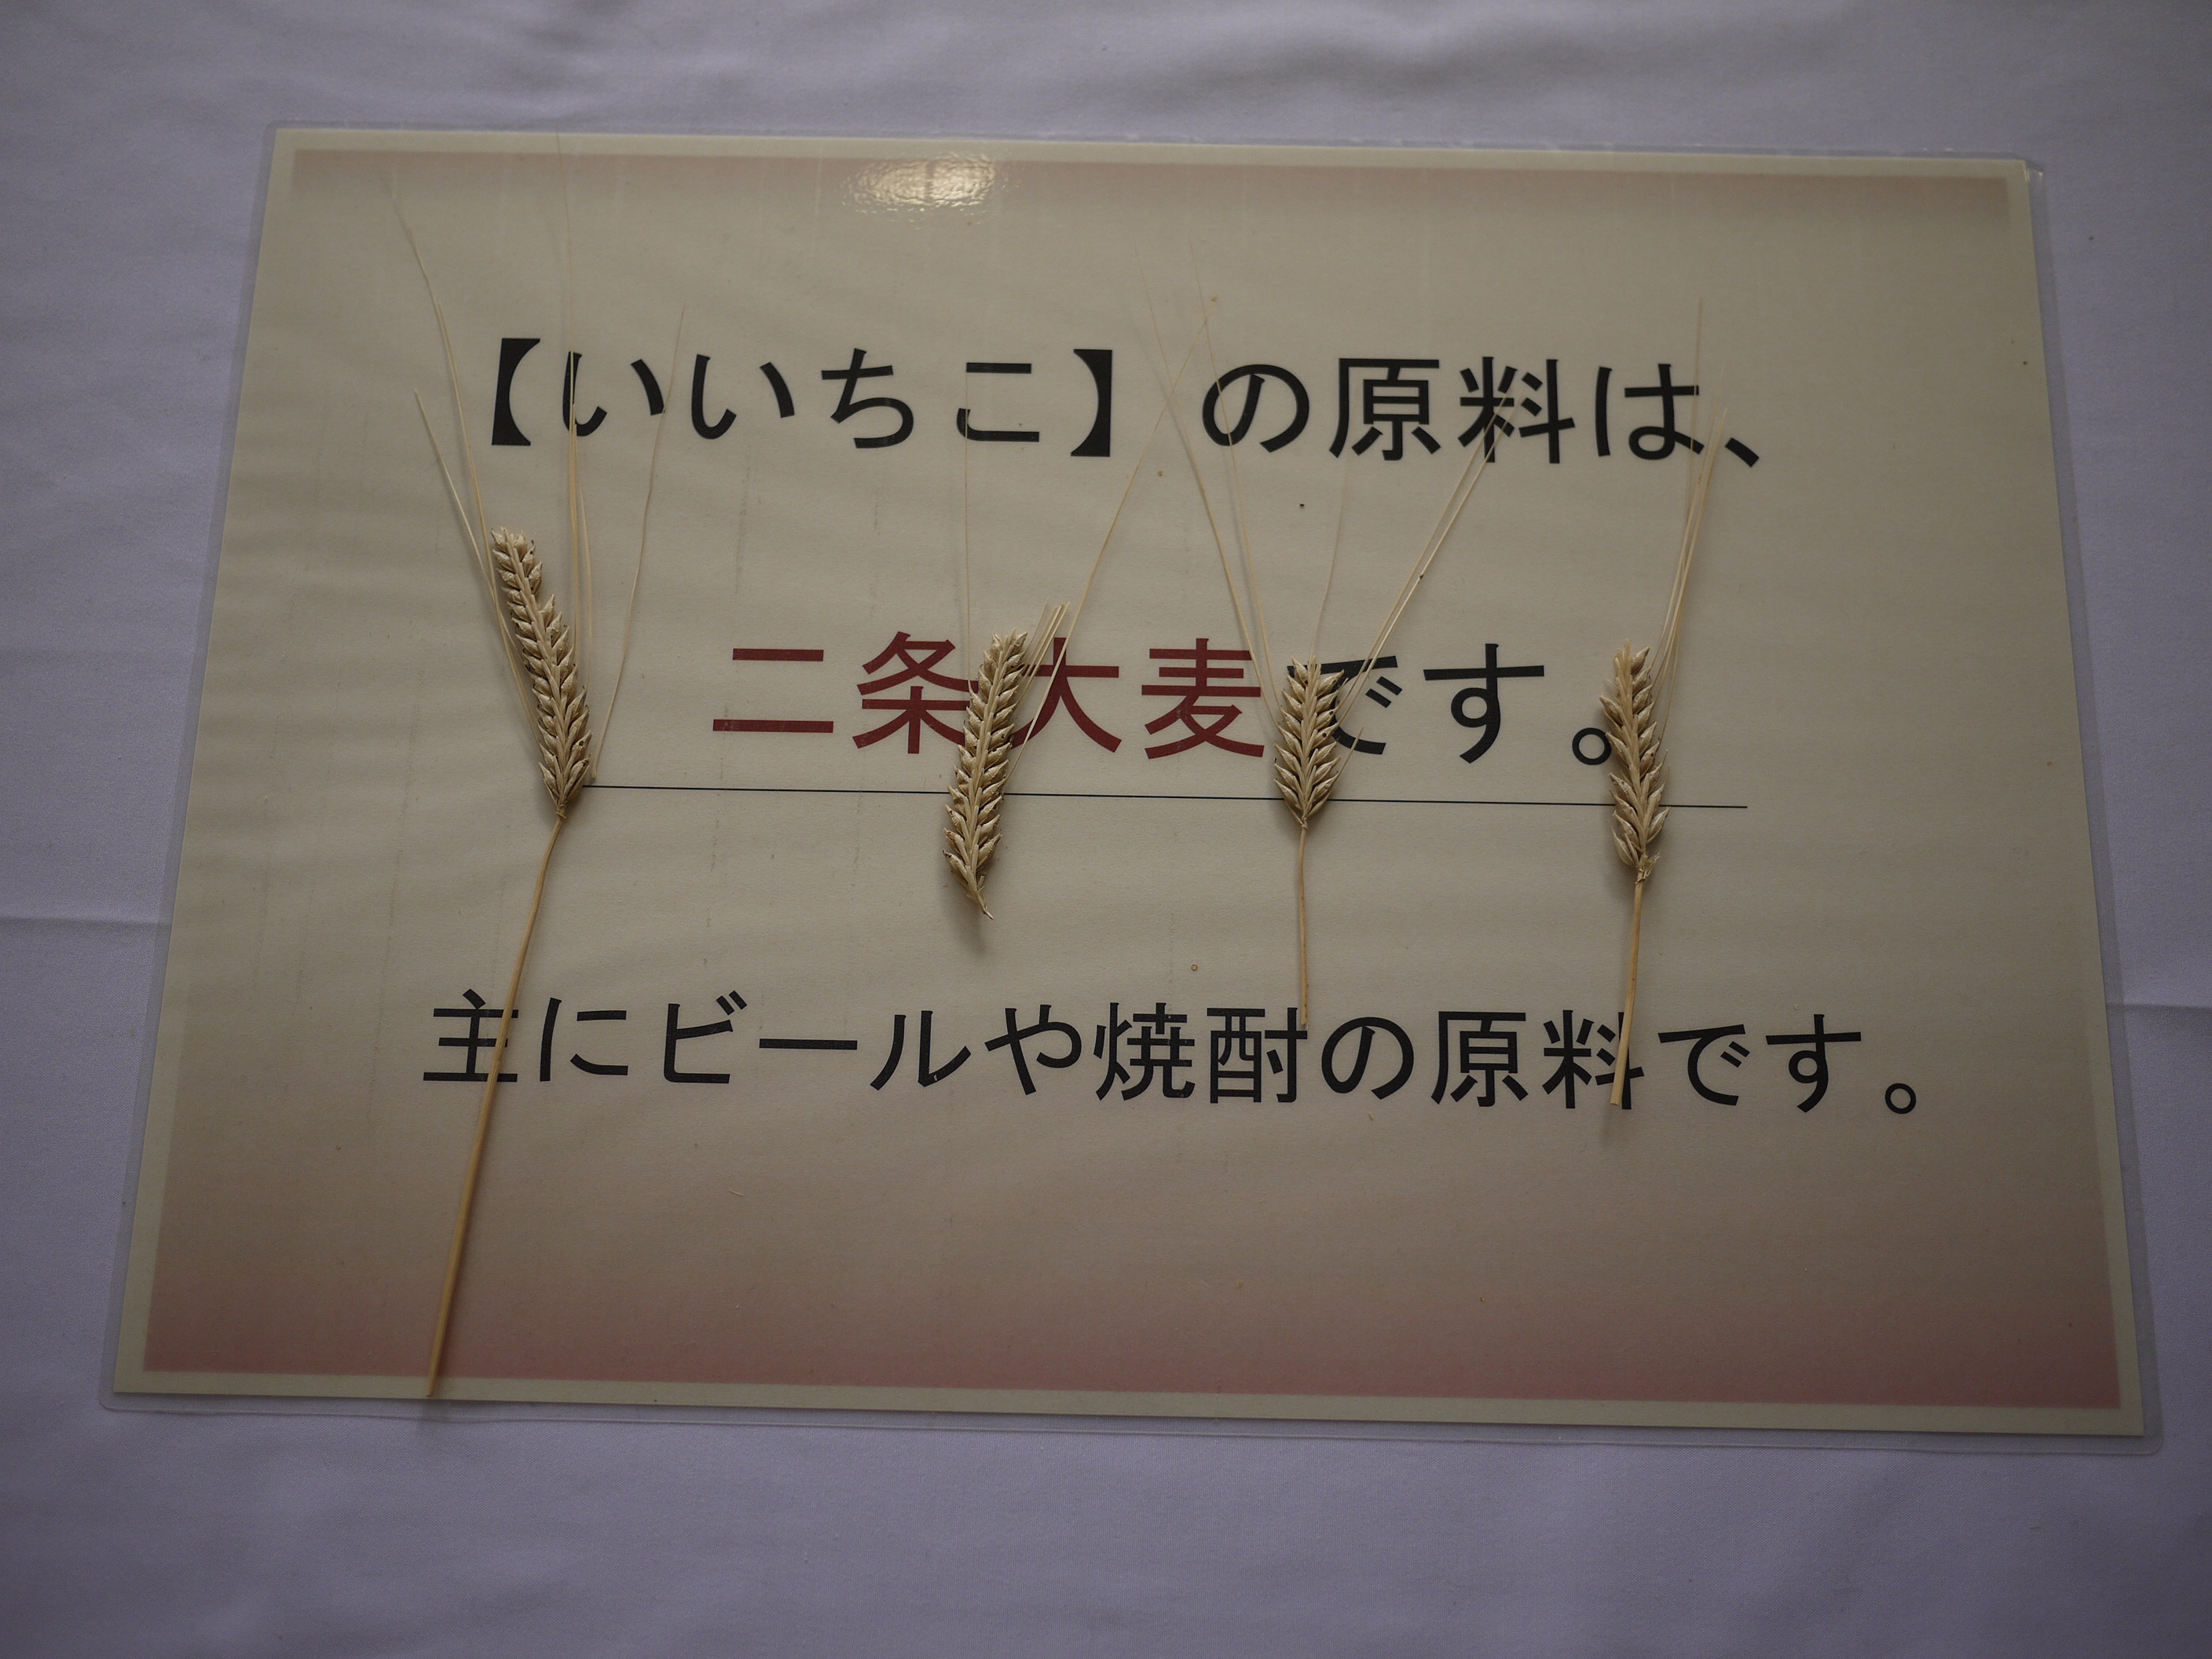 【いいちこ】の原料は、
二条大麦です。
主にビールや焼酎の原料です。